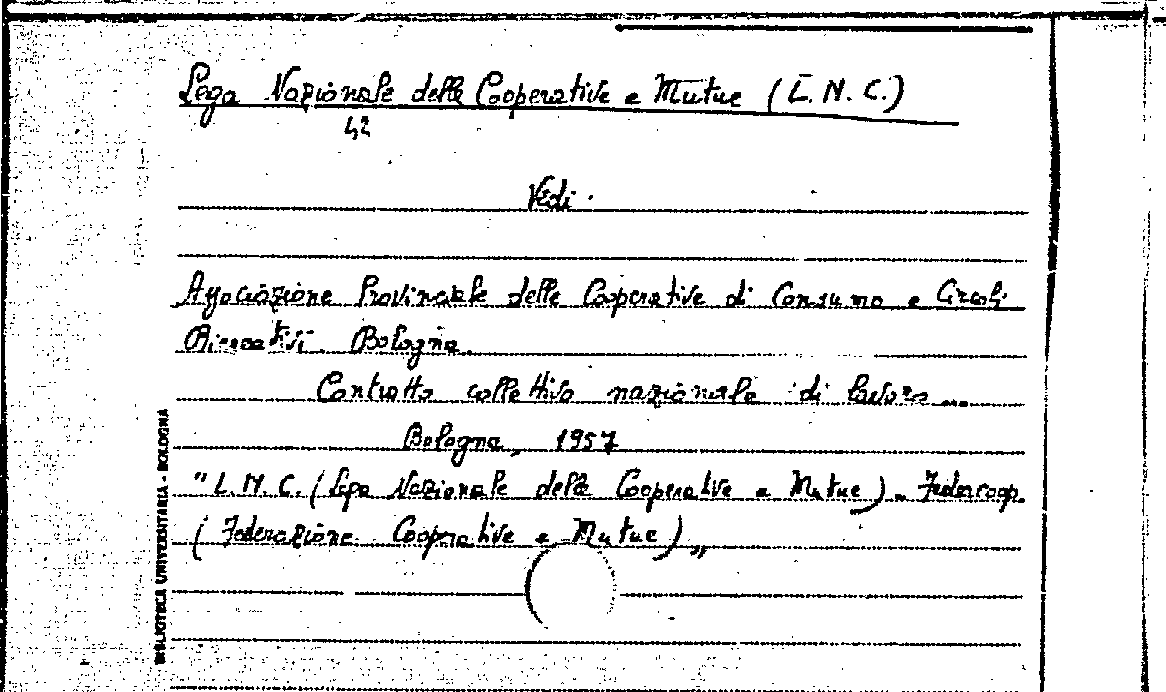 Lega Nazionale delle Cooperative e Mutue (L.N.C.)
42
Vedi.
Associazione Provinciale delle Cooperative di Consumo e Circoli
Ricreativi. Bologna.
Contratto collettivo nazionale di lavoro...
Bologna, 1957
"L.N.C. (Lega Nazionale delle Cooperative e Mutue). Federcoop.
(Federazione Cooperative e Mutue)„
BIBLIOTECA UNIVERSITARIA - BOLOGNA